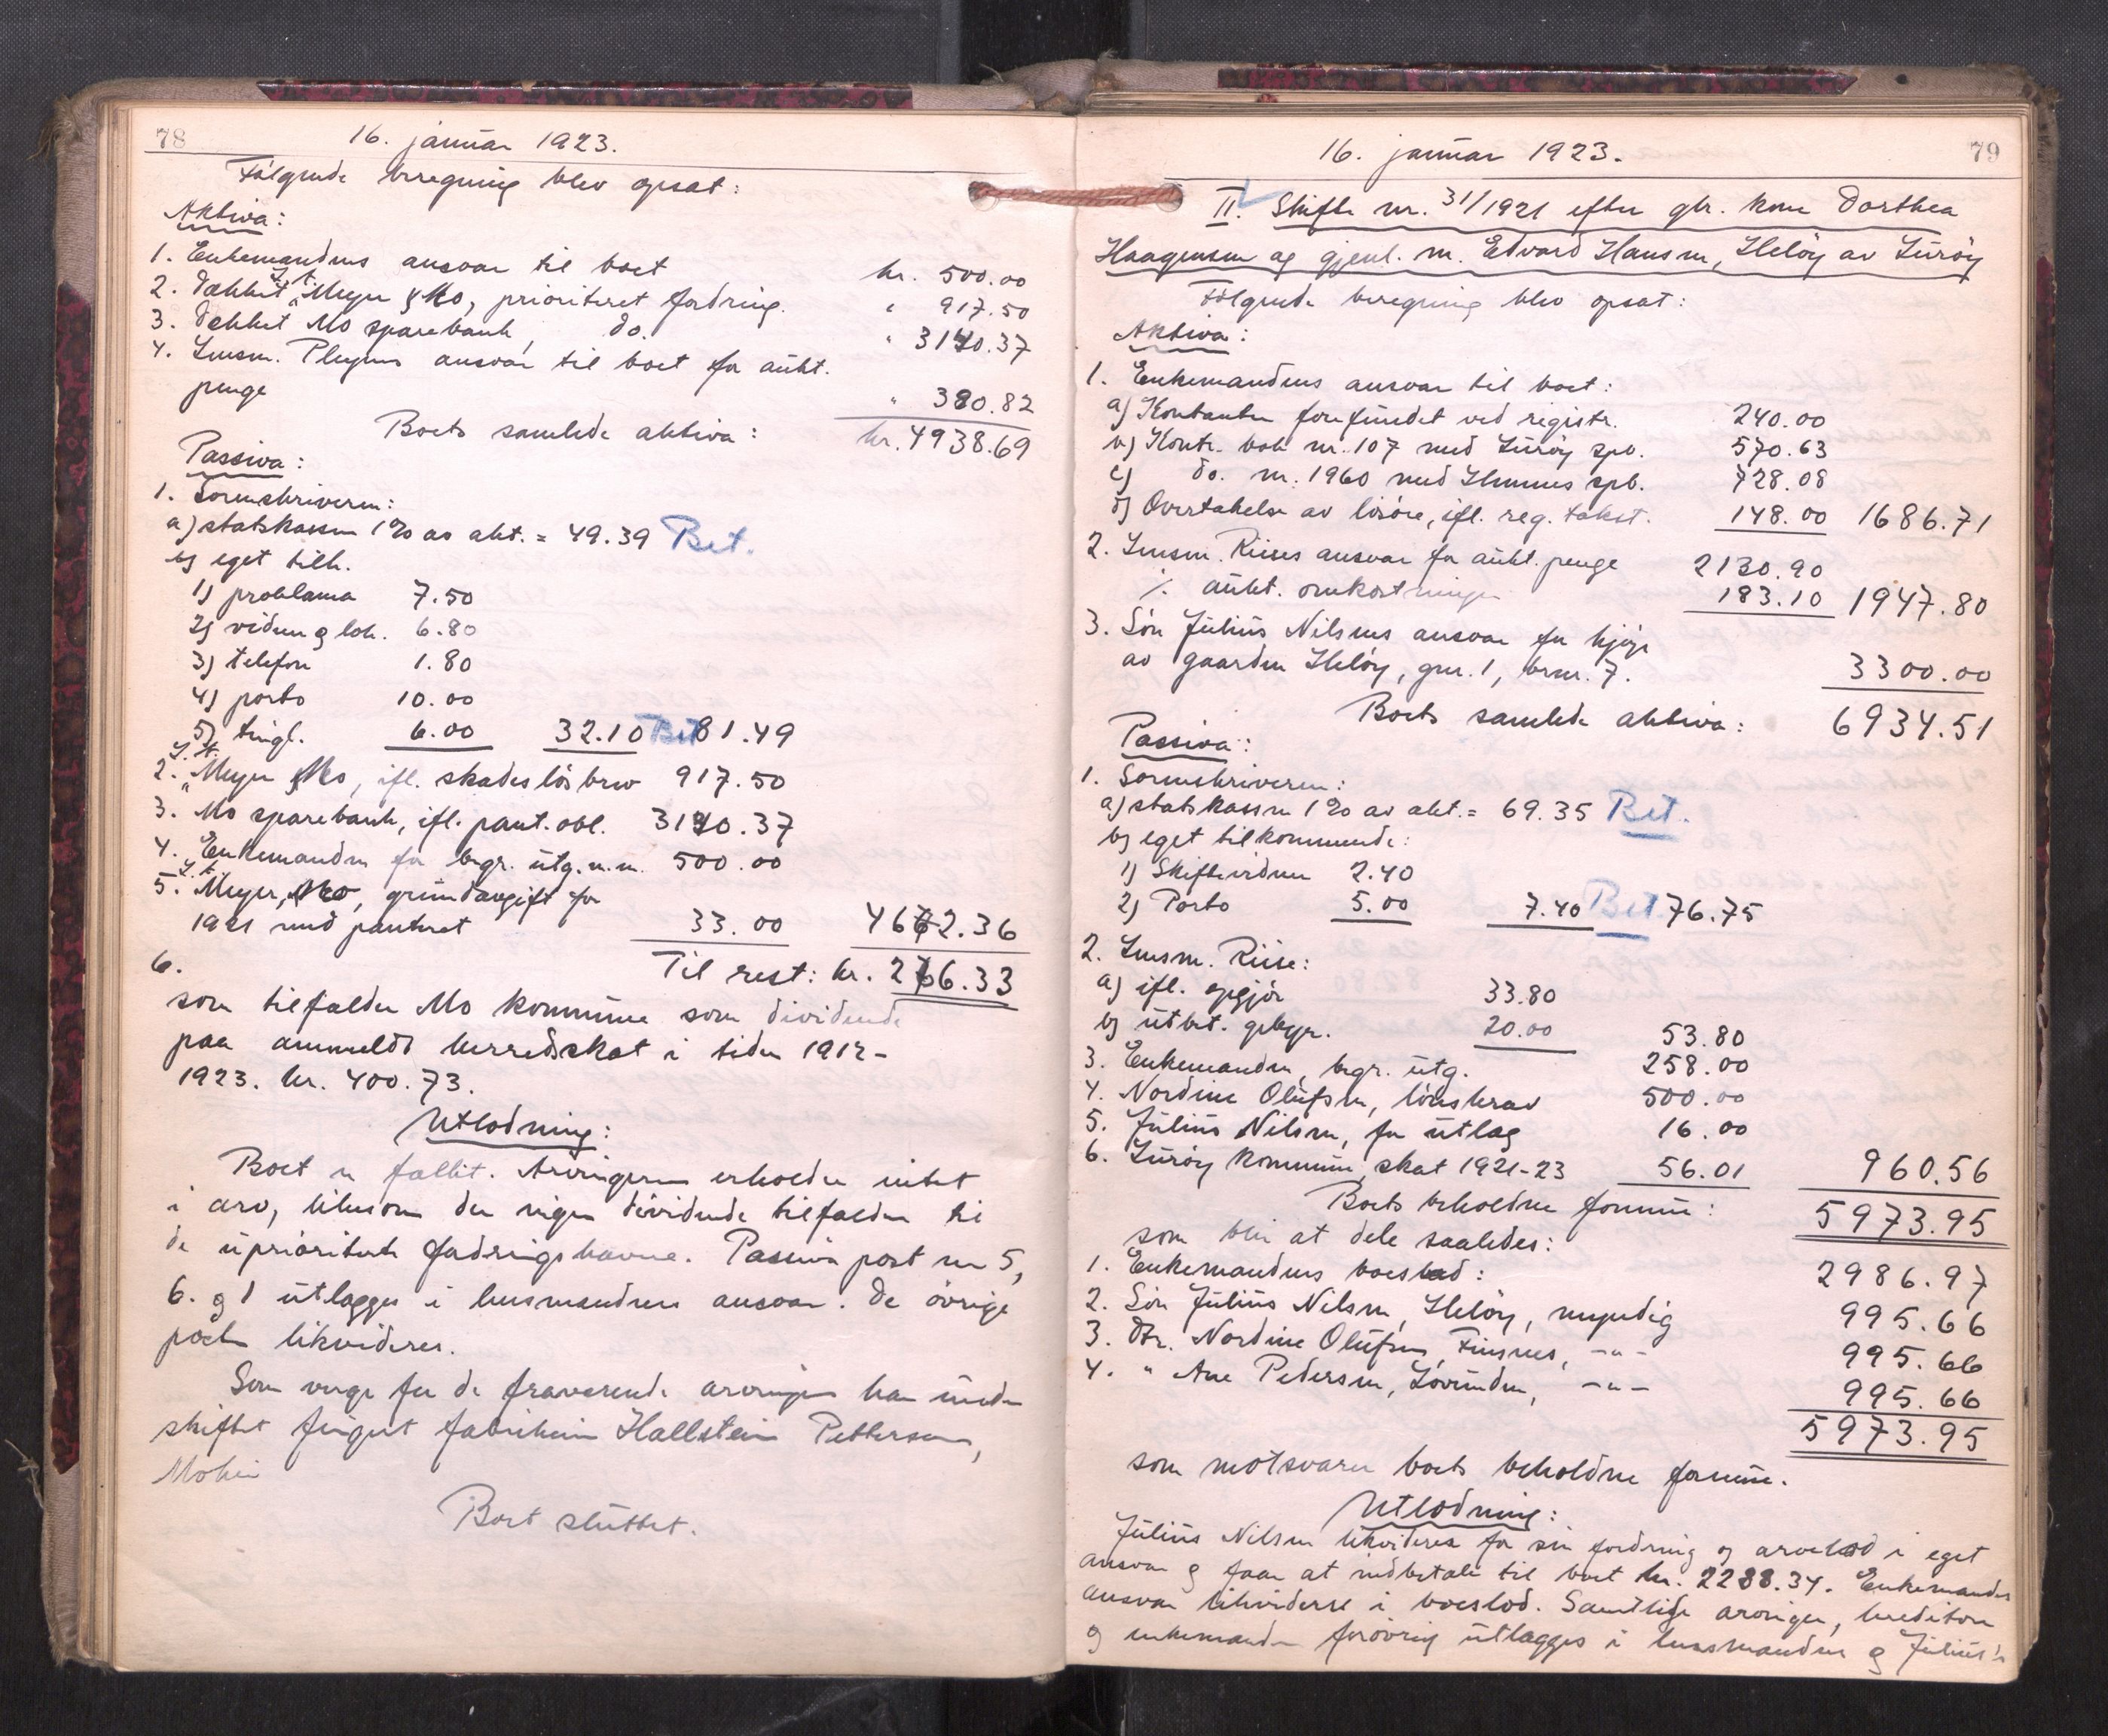 78
16. januar 1923.
Følgende beregning blev opsat:
Aktiva:
1. Enkemandens ansvar til boet kr. 500.00
2. Dækket L. A. Meyer, Mo, prioritert fordring. " 917.50
3. Dækket Mo sparebank, do. " 3140.37
4. Lensm. Plejms ansvar til boet for aukt.
penge " 380.82
Boets samlede aktiva: kr. 4938.69
Passiva:
1. Sorenskriveren:
a) statskassen 1% av akt. = 49.39 Bet.
b) eget tilk.
1) proklama 7.50
2) viden og lok. 6.80
3) telefon 1.80
4) porto 10.00
5) tingl. 6.00 32.10 Bet 81.49
2. L. A. Meyer, Mo, ifl. skadesløsbrev 917.50
3. Mo sparebank, ifl. pant. obl. 3140.37
4. Enkemanden for begr. utg. m.m. 500.00
5. L. A. Meyer, Mo, grundavgift for
1921 med panteret 33.00 4672.36
6. Til rest: kr. 266.33
som tilfalder Mo kommune som dividende
paa anmeldt herredsskat i tiden 1912-
1923. kr. 400.73.
Utlodning:
Boet er fallit. Arvingerne erholder intet
i arv, likesom der ingen dividende tilfalder til
de uprioriterte fordringshavere. Passiva post nr 5,
6. og 1 utlægges i lensmandens ansvar. De øvrige
poster likvideres.
Som verge for de fraværende arvinger har under
skiftet fungert fabrikeier Hallstein Pettersen,
Mohei
Boet sluttet.
79
16. januar 1923.
II. Skifte nr. 31/1921 efter gbr. kone Dorthea
Haagensen og gjenl. m. Edvard Hansen, Heløy av Lurøy
Følgende beregning blev opsat:
Aktiva:
1. Enkemandens ansvar til boet:
a) Kontanter forefundet ved registr. 240.00
b) Kontr. bok nr. 107 med Lurøy spb. 570.63
c) do. nr. 1960 med Hemnes spb. 728.08
d) Overtakelse av løsøre, ifl. reg. takst. 148.00 1686.71
2. Lensm. Riises ansvar for aukt. penge 2130.90
÷ aukt. omkostninger 183.10 1947.80
3. Søn Julius Nilsens ansvar for kjøp
av gaarden Heløy, gnr. 1, brnr. 7. 3300.00
Boets samlede aktiva: 6934.51
Passiva:
1. Sorenskriveren:
a) statskassen 1% av akt. = 69.35 Bet.
b) eget tilkommende:
1) Skifteviden 2.40
2) Porto 5.00 7.40 Bet. 76.75
2. Lensm. Riise:
a) ifl. opgjør 33.80
b) utbet. gebyr. 20.00 53.80
3. Enkemanden, begr. utg. 258.00
4. Nordine Olufsen, lønskrav 500.00
5. Julius Nilsen, for utlæg 16.00
6. Lurøy kommune, skat 1921-23 56.01 960.56
Boets beholdne formue: 5973.95
som blir at dele saaledes:
1. Enkemandens boeslod: 2986.97
2. Søn Julius Nilsen, Heløy, myndig 995.66
3. Dtr. Nordine Olufsen, Finsnes, -"- 995.66
4. " Ane Pedersen, Lovunden, -"- 995.66
5973.95
som motsvarer boets beholdne formue.
Utlodning:
Julius Nilsen likvideres for sin fordring og arvelod i eget
ansvar og faar at indbetale til boet kr. 2288.34. Enkemandens
ansvar likvideres i boeslod. Samtlige arvinger, kreditorer
og enkemanden forøvrig utlægges i lensmandens og Julius's